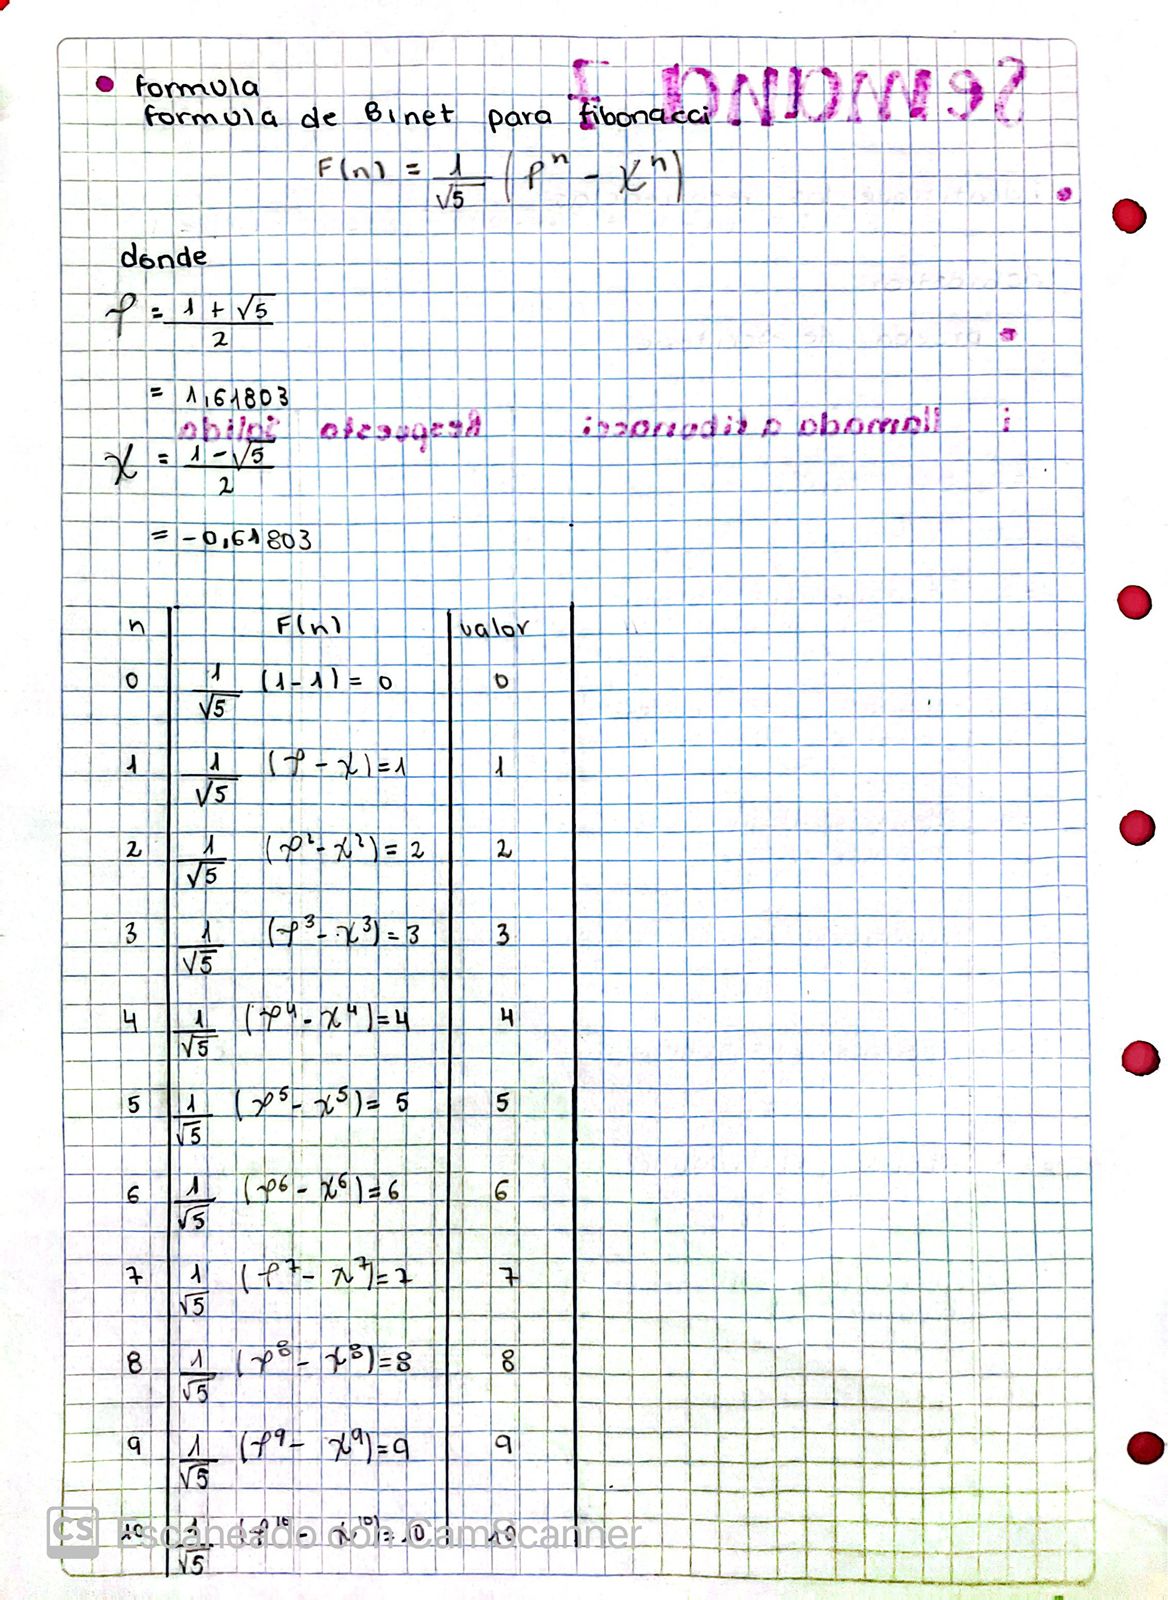 • formula
formula de Binet para fibonacci
F(n) = 1/√5 (φⁿ - χⁿ)
donde
φ = (1 + √5)/2
= 1,61803
χ = (1 - √5)/2
= -0,61803
n | F(n) | valor
0 | 1/√5 (1-1) = 0 | 0
1 | 1/√5 (φ - χ) = 1 | 1
2 | 1/√5 (φ² - χ²) = 2 | 2
3 | 1/√5 (φ³ - χ³) = 3 | 3
4 | 1/√5 (φ⁴ - χ⁴) = 4 | 4
5 | 1/√5 (φ⁵ - χ⁵) = 5 | 5
6 | 1/√5 (φ⁶ - χ⁶) = 6 | 6
7 | 1/√5 (φ⁷ - χ⁷) = 7 | 7
8 | 1/√5 (φ⁸ - χ⁸) = 8 | 8
9 | 1/√5 (φ⁹ - χ⁹) = 9 | 9
10 | 1/√5 (φ¹⁰ - χ¹⁰) = 10 | 10
CS Escaneado con CamScanner
Semana 7
i llamada a fibonacci Respuesta Salida